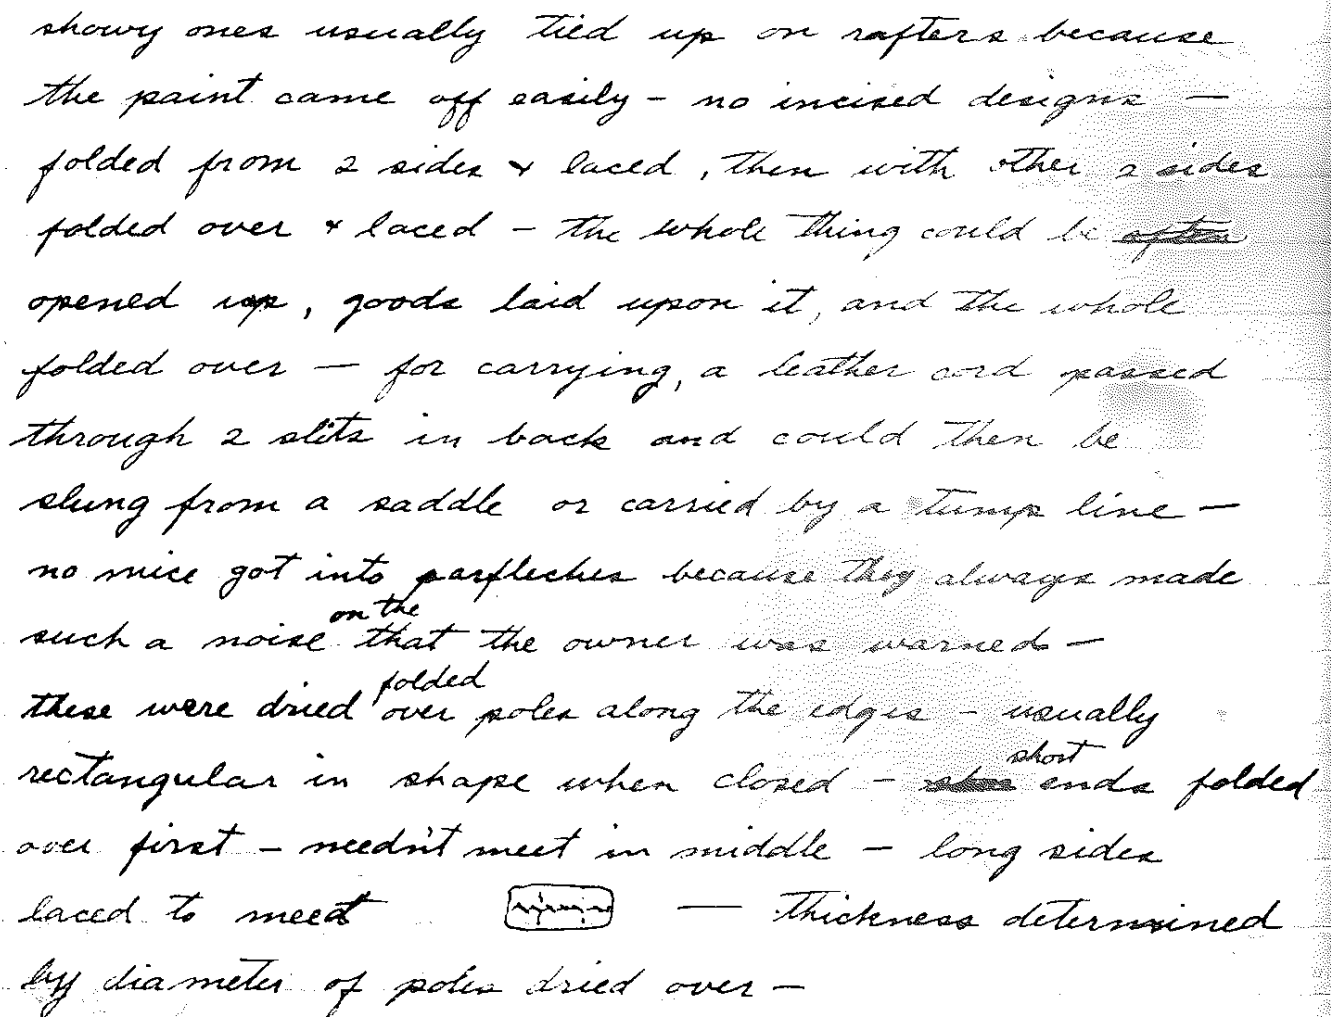 showy ones usually tied up on rafters because
the paint came off easily - no incised designs —
folded from 2 sides + laced, then with other 2 sides
folded over + laced - the whole thing could be often
opened up, goods laid upon it, and the whole
folded over — for carrying, a leather cord passed
through 2 slits in back and could then be
slung from a saddle or carried by a tump line -
no mice got into parfleches because they always made
on the
such a noise that the owner was warned -
folded
these were dried over poles along the edges - usually
short
rectangular in shape when closed - ends folded
over first - needn't meet in middle - long sides
laced to meet — thickness determined
by diameter of poles dried over -